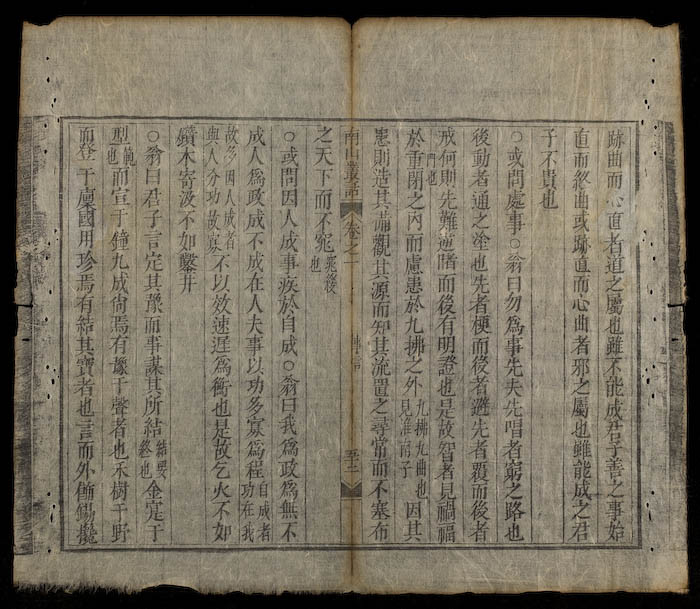 跡曲而心直者道之屬也雖不能成君子善之事始
直而終曲或跡直而心曲者邪之屬也雖能成之君
子不貴也
○或問處事○翁曰勿為事先夫先唱者窮之路也
後動者通之塗也先者梗而後者避先者覆而後者
戒何則先難逆睹而後有明證也是故智者見禍福
於重閉之內而慮患於九拂之外九拂九曲也見淮而子因其
門也
患則造其滿觀其源而知其流置之尋常而不塞布
之天下而不窕窕緩也
南山叢話 卷之一
○或問因人成事疾於自成○翁曰我為政為無不
成人為政成不成在人夫事以功多寡為程自成者功在我
故多因人成者與人分功故寡不以效速遲為衡也是故乞火不如
鑽木寄汲不如鑿井
○翁曰君子言定其豫而事謀其所結結要終也金寔于
型範也而宣于鐘九成尙焉有豫于聲者也禾樹于野
而登于廩國用珍焉有結其實者也言而外飾錫